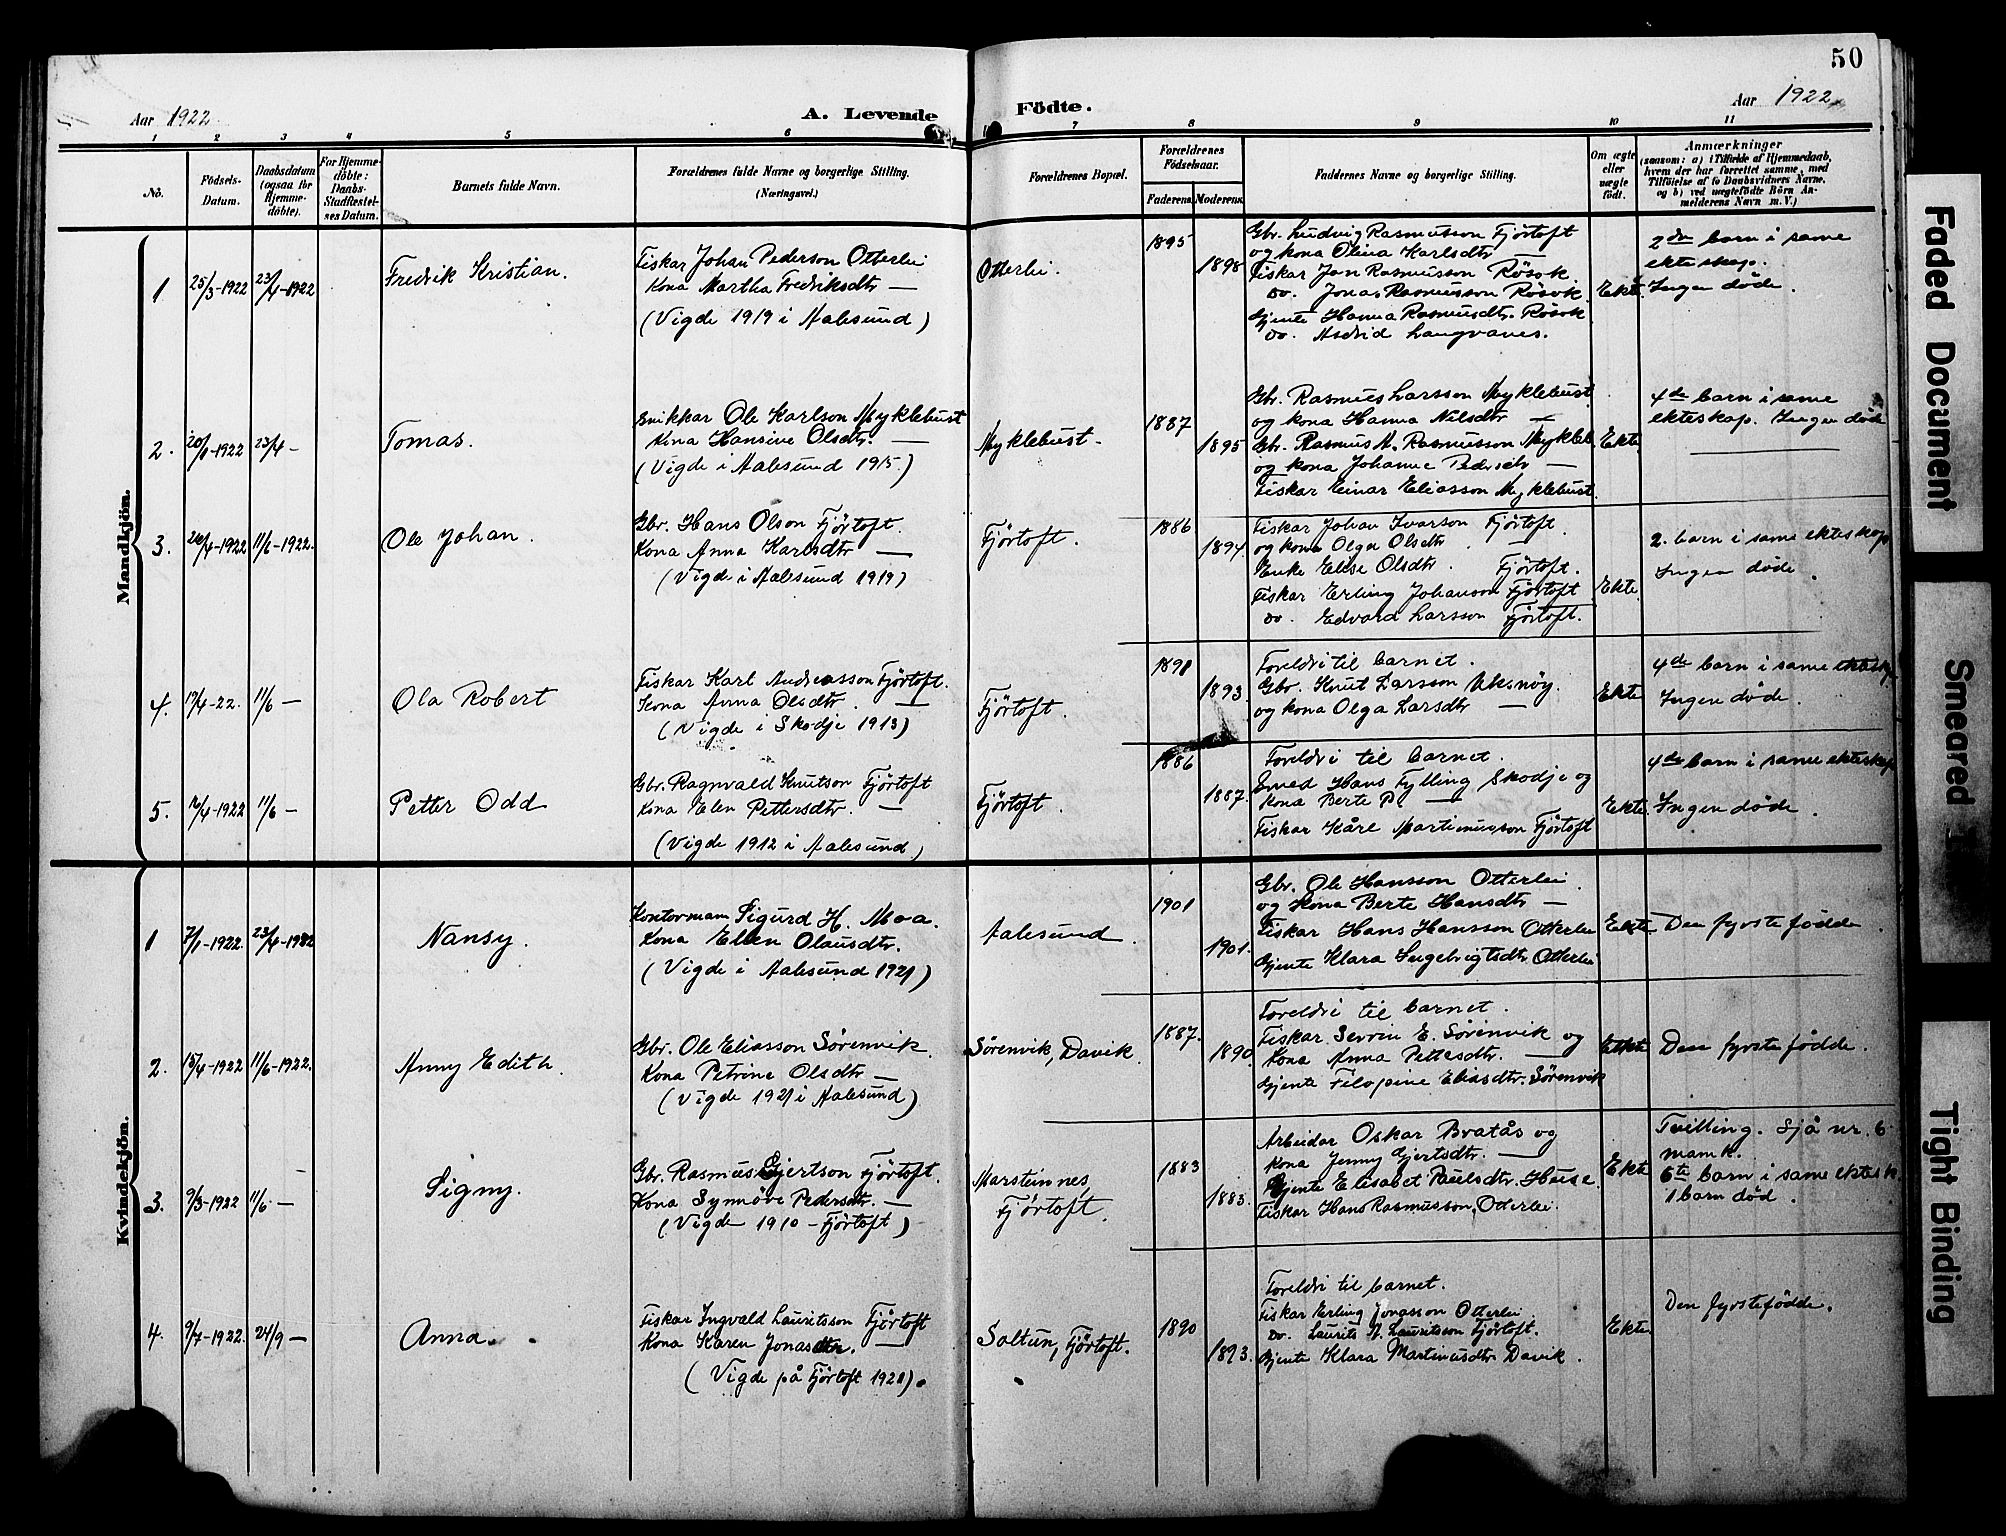 50
Aar 1922
A. Levende Födte.
Aar 1922
1 2 3 4 5 6 7 8 9 10 11
No.
Födsels-
Datum.
Daabsdatum
(ogsaa for
Hjemme-
döbte).
For Hjemme-
döbte:
Daabs-
Stadfæstel-
ses Datum.
Barnets fulde Navn.
Forældrenes fulde Navne og borgerlige Stilling.
(Næringsvei.)
Forældrenes Bopæl.
Forældrenes
Födselsaar.
Faderens. Moderens.
Faddernes Navne og borgerlige Stilling.
Om ægte
eller
uægte
födt.
Anmærkninger
(saasom: a) i Tilfælde af Hjemmedaab,
hvem der har forrettet samme, med
Tilföielse af to Daabsvidners Navne,
og b) ved uægtefödte Börn An-
melderens Navn m. V.)
Mandkjön.
1 25/3-1922 23/4-1922
Fredrik Kristian.
Fiskar Johan Pederson Otterlei
Kona Martha Fredriksdtr —
(Vigde 1919 i Aalesund)
Otterlei.
1895
1898
Gbr. Ludvig Rasmusson Fjörtoft
og kona Olina Karlsdtr —
Fiskar Jon Rasmusson Rösok
Do. Jonas Rasmusson Rösok
Gjente Hanna Rasmusdtr. Rösok
Do. Astrid Longvanes.
Ekte.
2dre barn i same
ekteskap.
Ingen döde.
2. 20/1-1922 23/4 —
Tomas.
Snikkar Ole Karlson Myklebust
Kona Hansine Olsdtr. —
(Vigde i Aalesund 1915.)
Myklebust.
1887
1895
Gbr. Rasmus Larsson Myklebust
og kona Hanna Nilsdtr —
Gbr. Rasmus M. Rasmusson Mykleb
og kona Johanne Pedersdtr —
Fiskar Einar Eliasson Myklebust.
Ekte.
4de barn i same
ekteskap. Ingen döde
3. 26/4-1922 11/6-1922.
Ole Johan.
Gbr. Hans Olson Fjörtoft.
Kona Anna Karlsdtr —
(Vigde i Aalesund 1919)
Fjörtoft.
1886
1894.
Fiskar Johan Ivarson Fjörtoft.
og kona Olga Olsdtr. —
Enke Elise Olsdtr. Fjörtoft.
Fiskar Erling Johanson Fjörtoft
Do. Edvard Larsson Fjörtoft.
Ekte.
2. barn i same ekteskap
Ingen döde.
4. 17/4-22. 11/6 —
Ola Robert
Fiskar Karl Andreasson Fjörtoft.
Kona Anna Olsdtr. —
(Vigde i Skodje 1913)
Fjörtoft.
1891
1893
Foreldri til barnet.
Gbr. Knut Larsson Uksnöy.
og kona Olga Larsdtr —
Ekte
4de barn i same ekteskap
Ingen döde.
5. 16/4-1922 11/6 —
Petter Odd
Gbr. Ragnvald Knutson Fjörtoft
Kona Elen Pettersdtr. —
(Vigde 1912 i Aalesund)
Fjörtoft.
1886
1887.
Foreldri til barnet.
Smed Hans Fylling Skodje og
Kona Berte P. —
Fiskar Kåre Martinusson Fjörtoft
Ekte.
4de barn i same ekteskap
Ingen döde.
Kvindekjön.
1 7/1-1922. 23/4-1922
Nansy.
Kontormann Sigurd H. Moa.
Kona Ellen Olausdtr.
(Vigde i Aalesund 1921)
Aalesund.
1901
1901.
Gbr. Ole Hansson Otterlei
og Kona Berte Hansdtr —
Fiskar Hans Hansson Otterlei
Gjente Klara Ingebrigtsdtr. Otterlei
Ekte.
Den fyrste födde.
2. 15/4-1922 11/6-1922.
Anny Edith.
Gbr. Ole Eliasson Sörenvik.
Kona Petrine Olsdtr —
(Vigde 1921 i Aalesund)
Sörenvik, Davik.
1887.
1890
Foreldri til barnet.
Fiskar Severin E. Sörenvik og
Kona Anna Pettersdtr. —
Gjente Filopine Eliasdtr. Sörenvik
Ekte
Den fyrste födde.
3. 9/3-1922 11/6 —
Signy.
Gbr. Rasmus Gjertson Fjörtoft.
Kona Synnöve Pedersdtr. —
(Vigde 1910 - Fjörtoft)
Marsteinnes
Fjörtoft.
1883
1883.
Arbeidar Oskar Bratås og
Kona Jenny Gjertsdtr. —
Gjente Elisabet Paulsdtr. Huse.
Fiskar Hans Rasmusson, Otterlei.
Ekte
Tvilling. Sjå nr. 6
mannk.
6te barn i same ektesk.
1 barn död.
4. 9/7-1922. 24/9 —
Anna.
Fiskar Ingvald Lauritsson Fjörtoft
Kona Karen Jonasdtr. —
(Vigde på Fjörtoft 1921).
Soltun, Fjörtoft.
1890
1893.
Foreldri til barnet.
Fiskar Erling Jonasson Otterlei
Do. Laurits N. Lauritsson Fjörtoft.
Gjente Klara Martinusdtr Davik.
Ekte.
Den fyrstefödde.
Faded Document
Smeared I
Tight Binding